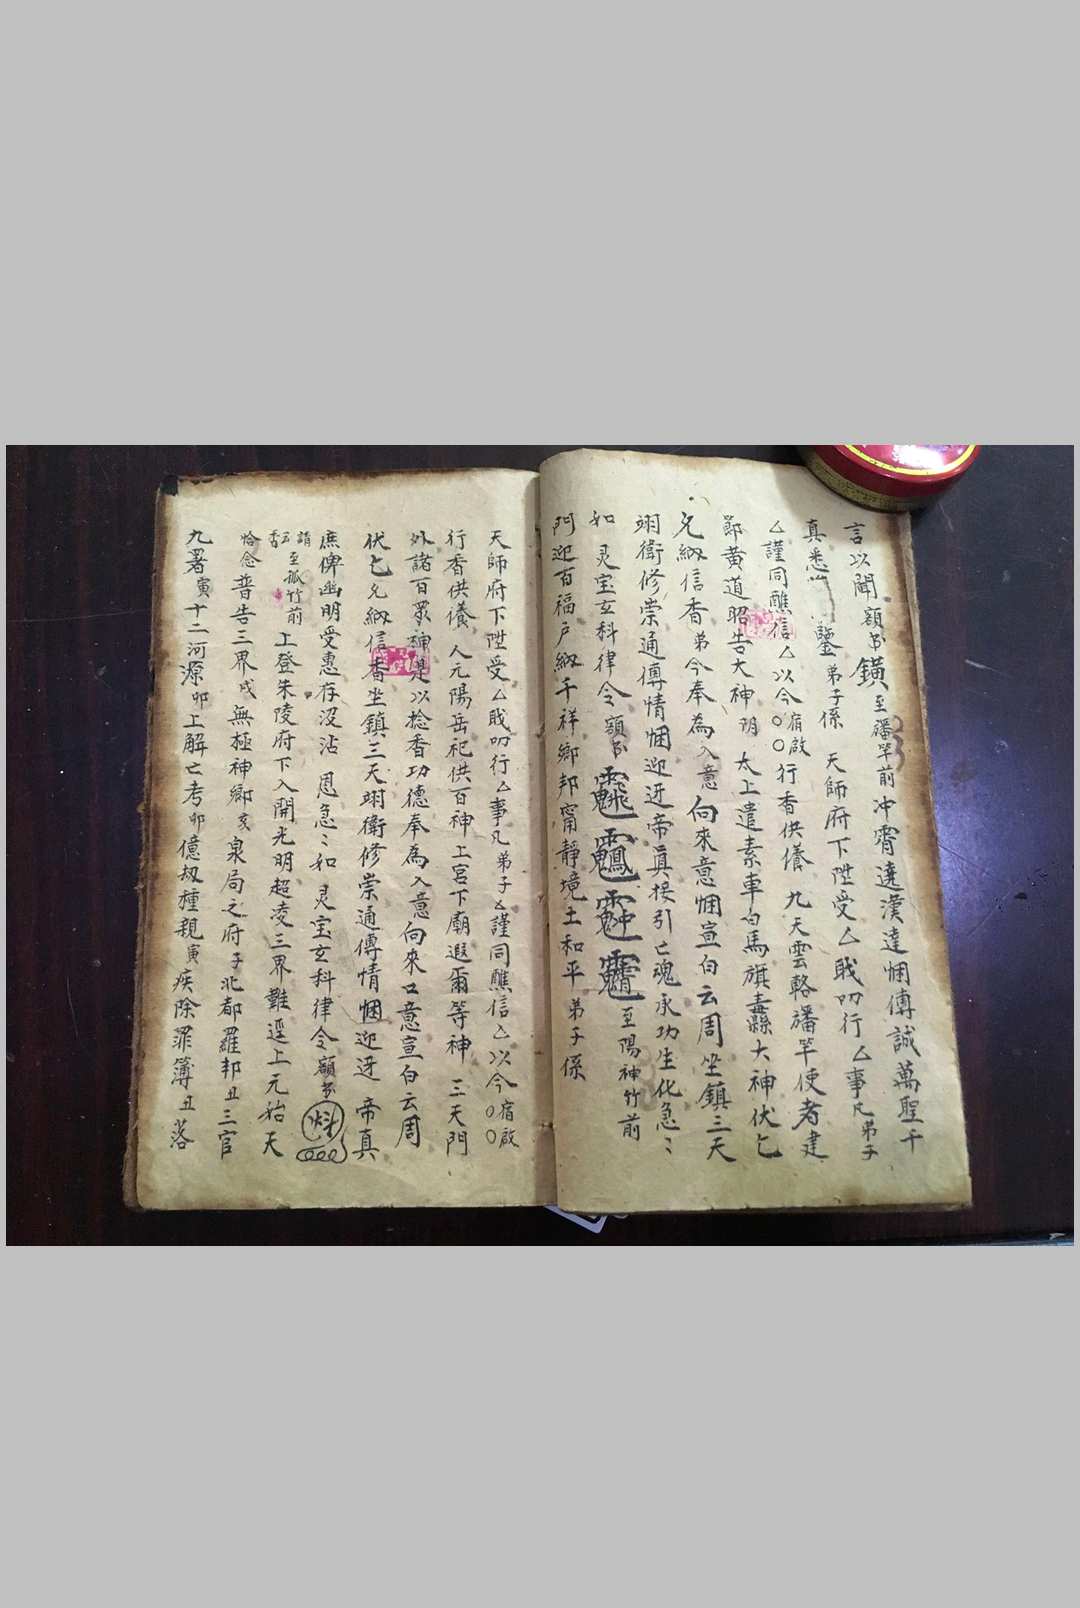 言以聞額書鐄至旛竿前冲霄達漢達悃傳誠萬聖千
真悉 鑒弟子係 天師府下陞受厶戝叨行厶事凡弟子
厶謹同醮信厶以今宿啟〇〇行香供養 九天雲輅旛竿使者建
節黃道昭告大神 明 太上遣素車白馬旗纛縣大神伏乞
允納信香弟今奉為入意向來意悃宣白云周坐鎮三天
翊衛修崇通傳情悃迎迓帝真接引亡魂承功生化急〻
如 灵宝玄科律令額書 至陽神竹前
門迎百福户納千祥鄉邦甯靜境土和平弟子係
天師府下陞受厶戝叨行厶事凡弟子厶謹同醮信厶以今宿啟〇〇
行香供養 人元陽岳祀供百神上宮下廟遐爾等神 三天門
外諸百眾神 以捻香功德奉為入意向來口意宣白云周
伏乞允納信香坐鎮三天翊衛修崇通傳情悃迎迓 帝真
庶俾幽明受惠存没沾 恩急〻如 灵宝玄科律令額書
請五香至孤竹前 上登朱陵府下入開光明超凌三界難逕上元始天
恰念普告三界戌無極神鄉亥泉局之府子北都羅邦丑三官
九署寅十二河源卯上解亡考卯億刼種親寅疾除罪簿丑落